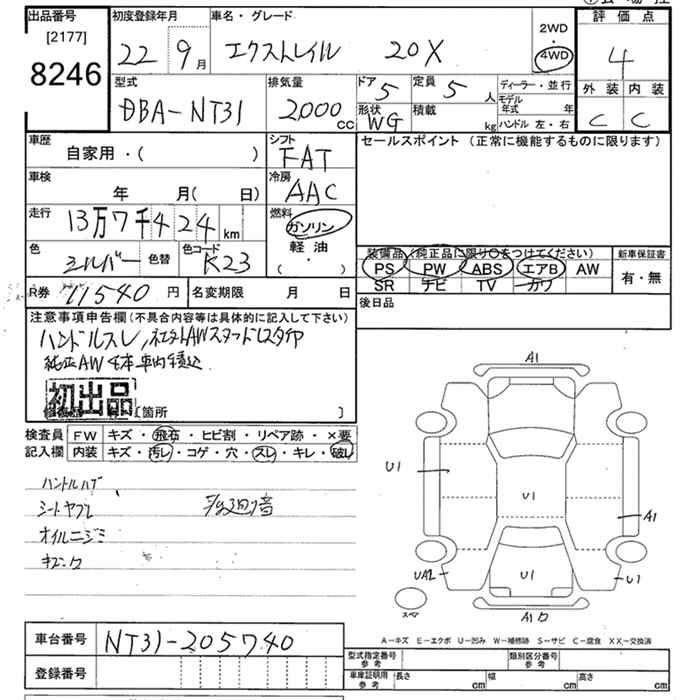 出品番号 初度登録年月 車名・グレード 2WD・4WD 評価点
[2177]
8246 22年 9月 エクストレイル 20X 4
型式 排気量 ドア 5 定員 5人 ディーラー・並行 外装 内装
DBA-NT31 2,000cc 形状 WG 積載 kg モデル年式 年 ハンドル 左・右 C C
車歴 シフト セールスポイント (正常に機能するものに限ります)
自家用・( ) FAT
車検 冷房
年 月( 日) AAC
走行 燃料
13万7千424km ガソリン
軽油
( )
色 シルバー 色替 色コード K23
装備品 (純正品に限り〇をつけてください) 新車保証書
PS PW ABS エアB AW 有・無
SR ナビ TV カワ
R券 11540円 名変期限 月 日 後日品
注意事項申告欄(不具合内容等は具体的に記入して下さい)
ハンドルスレ, 社外AWスタッドレスタイヤ
純正AW4本車内積込
初出品
箇所 〕
検査員 FW キズ・飛石・ヒビ割・リペア跡・×要
記入欄 内装 キズ・汚レ・コゲ・穴・スレ・キレ・破レ
ハンドルハゲ
シートヤブレ
オイルニジミ
A1
U1
U1
A1
UA2
U1
U1
スペア
A-キズ E-エクボ U-凹み W-補修跡 S-サビ C-腐食 XX-交換済
車台番号 NT31-205740
登録番号
型式指定番号 参考 類別区分番号 参考
車庫証明用 参考 長さ cm 幅 cm 高さ cm